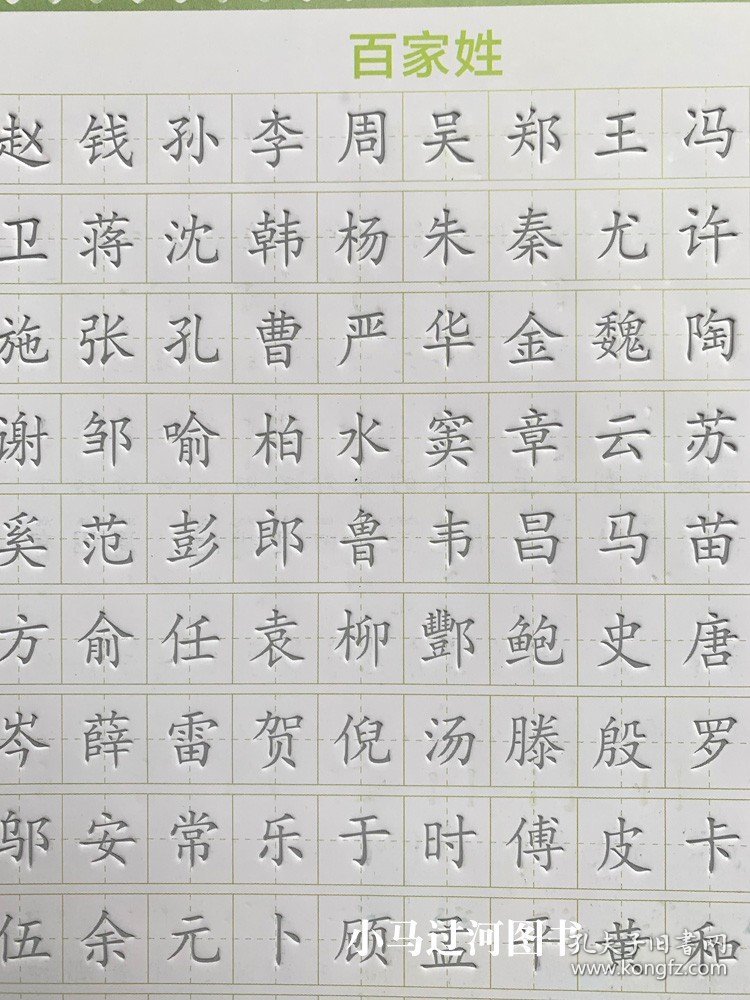 百家姓
赵钱孙李周吴郑王冯
卫蒋沈韩杨朱秦尤许
施张孔曹严华金魏陶
谢邹喻柏水窦章云苏
奚范彭郎鲁韦昌马苗
方俞任袁柳酆鲍史唐
岑薛雷贺倪汤滕殷罗
邬安常乐于时傅皮卡
伍余元卜顾孟平黄和
小马过河图书
孔夫子旧书网
www.kongfz.com